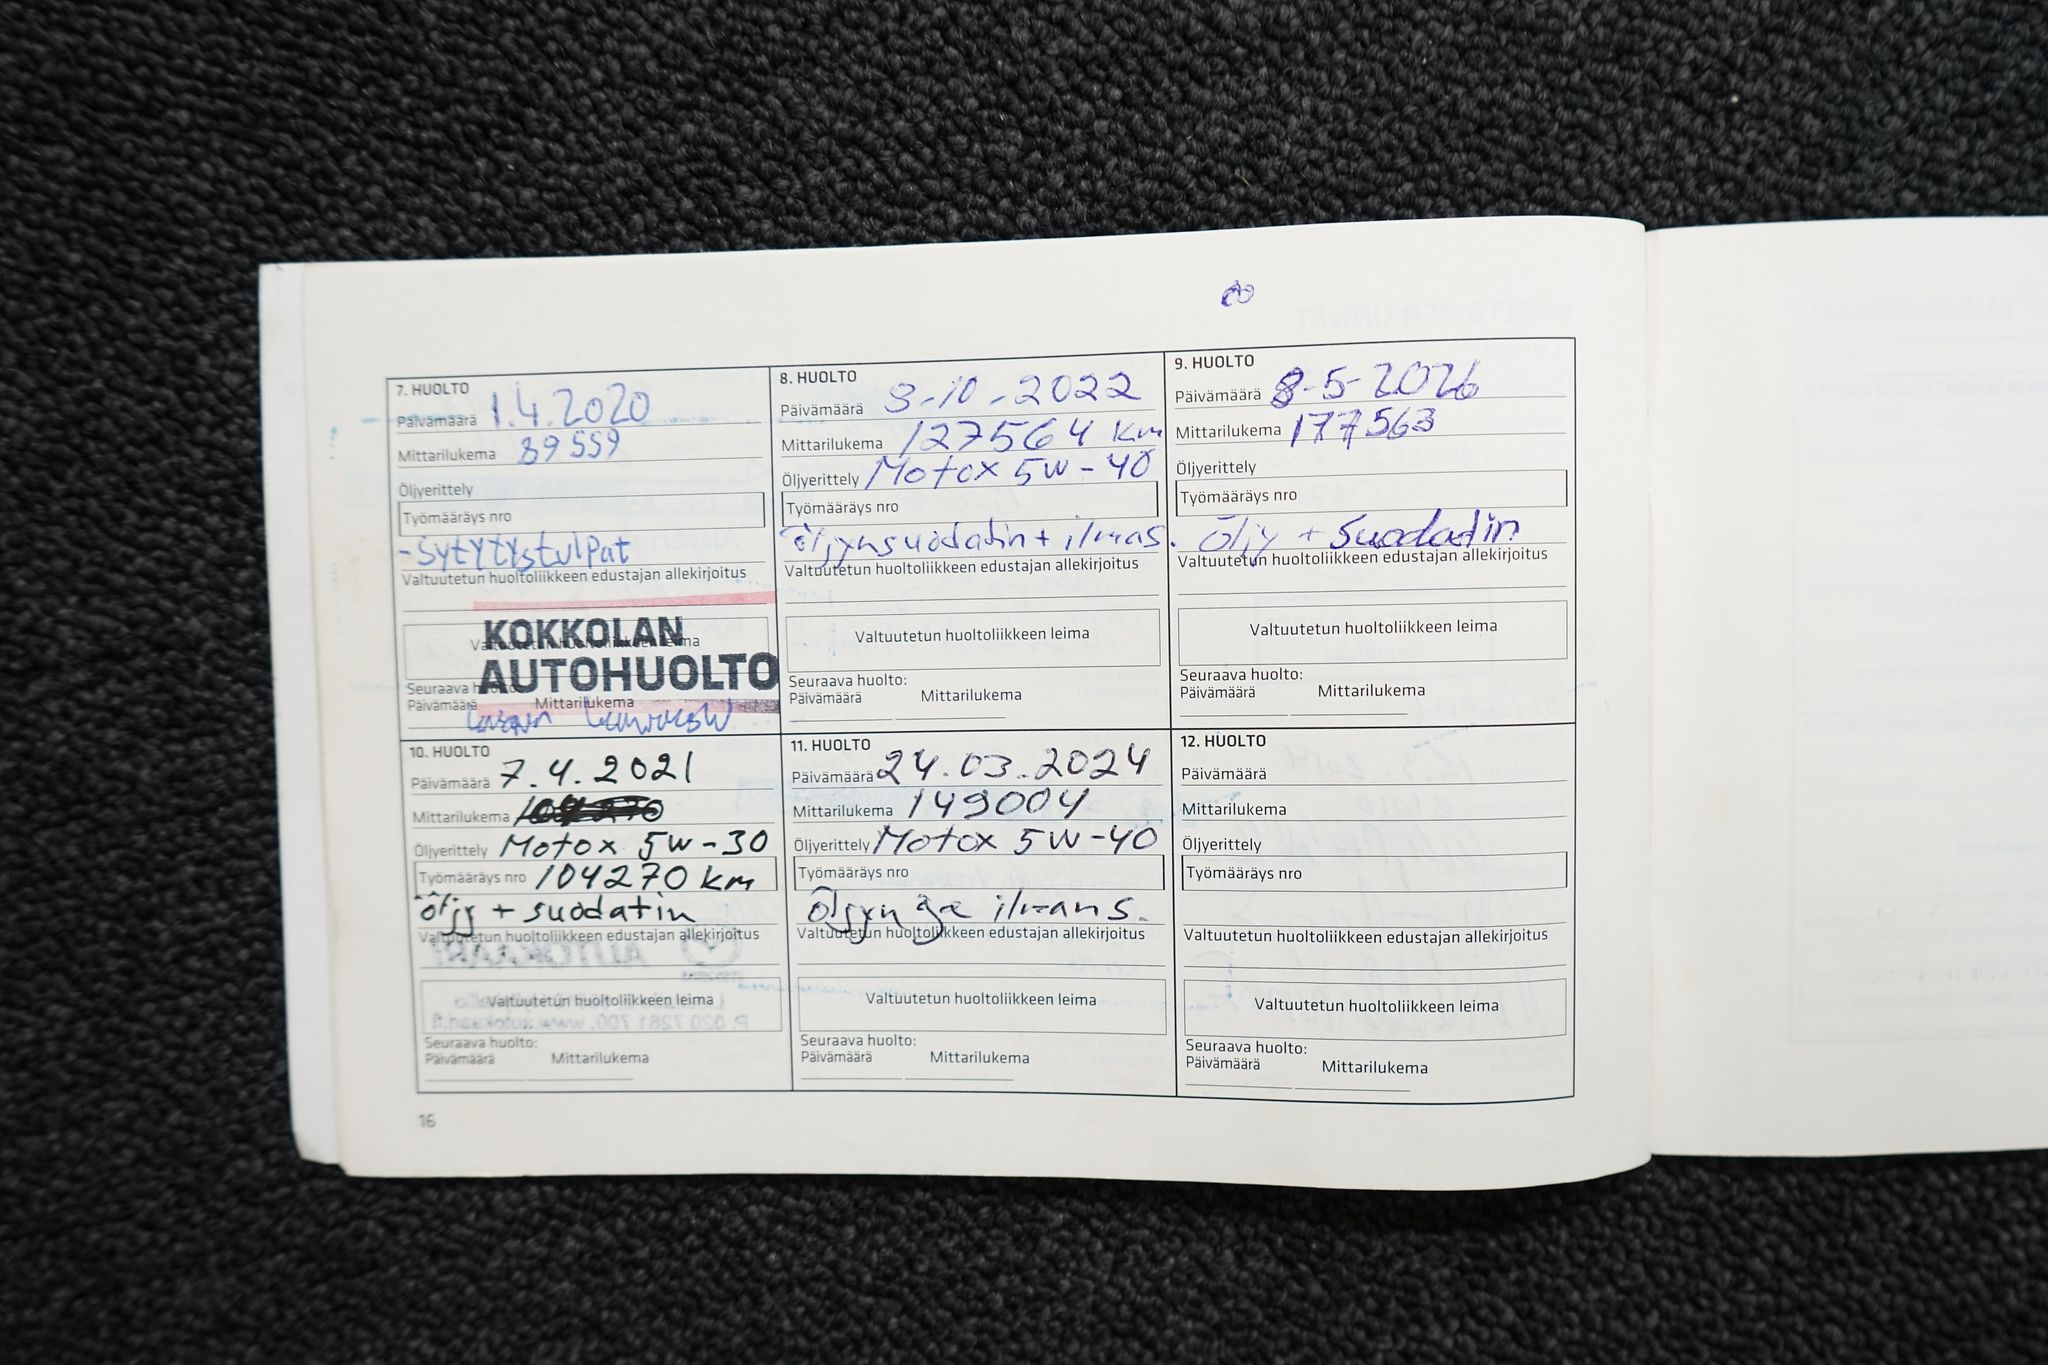 7. HUOLTO
Päivämäärä 1.4.2020
Mittarilukema 89559
Öljyerittely
Työmääräys nro
-Sytytystulpat
Valtuutetun huoltoliikkeen edustajan allekirjoitus
Valtuutetun huoltoliikkeen leima
KOKKOLAN
AUTOHUOLTO
Seuraava huolto:
Päivämäärä Mittarilukema
8. HUOLTO
Päivämäärä 3-10-2022
Mittarilukema 127564 km
Öljyerittely Motox 5W-40
Työmääräys nro
öljynsuodatin + ilmas.
Valtuutetun huoltoliikkeen edustajan allekirjoitus
Valtuutetun huoltoliikkeen leima
Seuraava huolto:
Päivämäärä Mittarilukema
9. HUOLTO
Päivämäärä 8-5-2026
Mittarilukema 177563
Öljyerittely
Työmääräys nro
Öljy + Suodatin
Valtuutetun huoltoliikkeen edustajan allekirjoitus
Valtuutetun huoltoliikkeen leima
Seuraava huolto:
Päivämäärä Mittarilukema
10. HUOLTO
Päivämäärä 7.4.2021
Mittarilukema
Öljyerittely Motox 5W-30
Työmääräys nro 104270 km
öljy + suodatin
Valtuutetun huoltoliikkeen edustajan allekirjoitus
Valtuutetun huoltoliikkeen leima
Seuraava huolto:
Päivämäärä Mittarilukema
11. HUOLTO
Päivämäärä 24.03.2024
Mittarilukema 149004
Öljyerittely Motox 5W-40
Työmääräys nro
Öljyn ja ilmans.
Valtuutetun huoltoliikkeen edustajan allekirjoitus
Valtuutetun huoltoliikkeen leima
Seuraava huolto:
Päivämäärä Mittarilukema
12. HUOLTO
Päivämäärä
Mittarilukema
Öljyerittely
Työmääräys nro
Valtuutetun huoltoliikkeen edustajan allekirjoitus
Valtuutetun huoltoliikkeen leima
Seuraava huolto:
Päivämäärä Mittarilukema
16